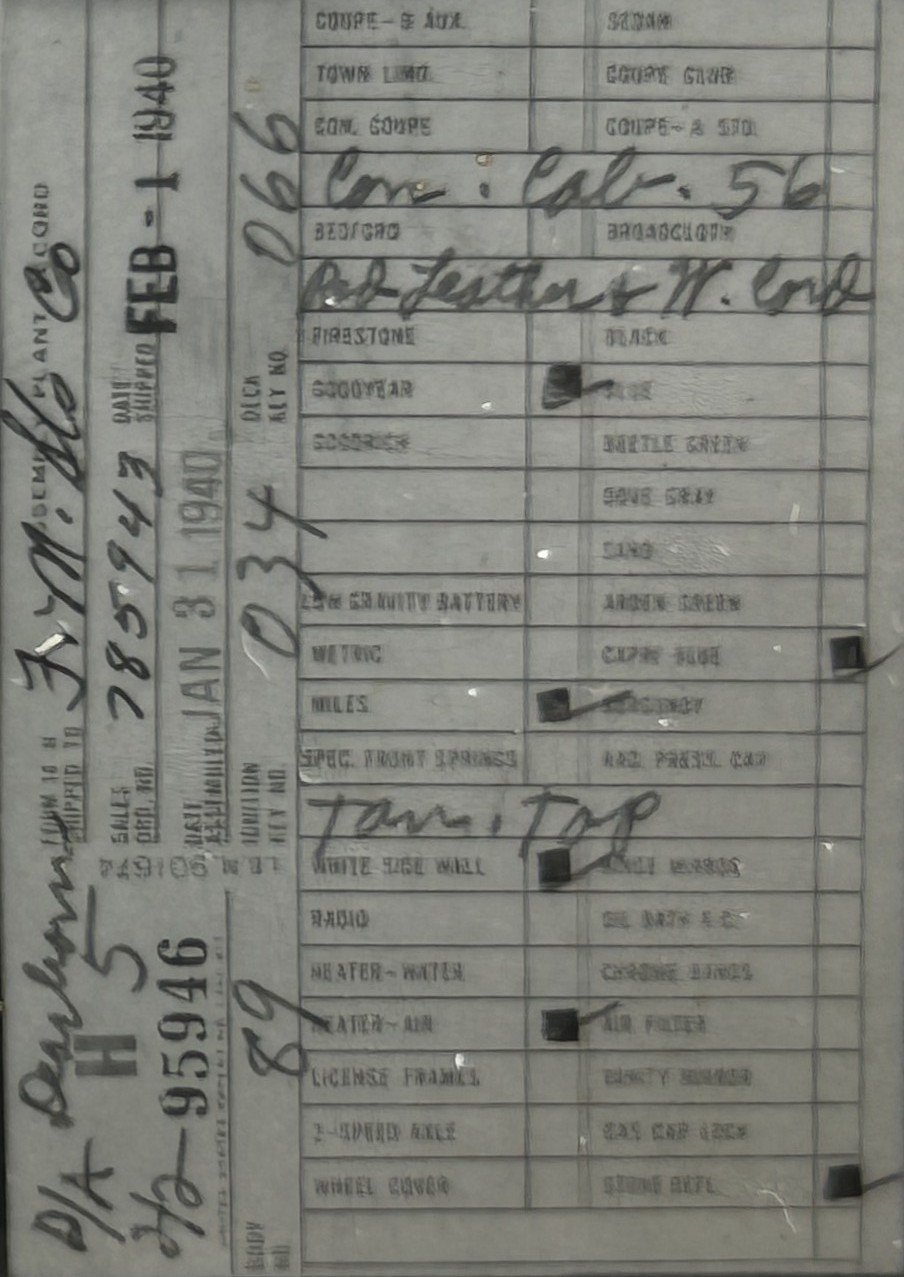 D/A Dearborn
FORM 10 H
SHIPPED TO
PLANT RECORD
H 5
SALES ORD. NO. 785943
DATE SHIPPED FEB - 1 1940
H2-95946
DATE ASSEMBLED JAN 31 1940
BODY NO 89
IGNITION KEY NO. 034
DECK KEY NO. 066
COUPE-5 AUX. SEDAN
TOWN LIMO. COUPE CLUB
CON. COUPE COUPE-A STD.
Con. Cab. 56
BEDFORD BROADCLOTH
Red Leather & W. Cord
FIRESTONE BLACK
GOODYEAR
GOODRICH BEETLE GREEN
DOVE GRAY
SAND
LOW GRAVITY BATTERY ARDEN GREEN
METRIC CAPRI BLUE
MILES
SPEC. FRONT SPRINGS RAD. PRESS. CAP
Tan. Top
WHITE SIDE WALL
RADIO OIL BATH A C
HEATER-WATER CHROME RINGS
HEATER-AIR AIR FILTER
LICENSE FRAMES VANITY MIRROR
2-SPEED AXLE GAS CAP LOCK
WHEEL COVER STONE DEFL.